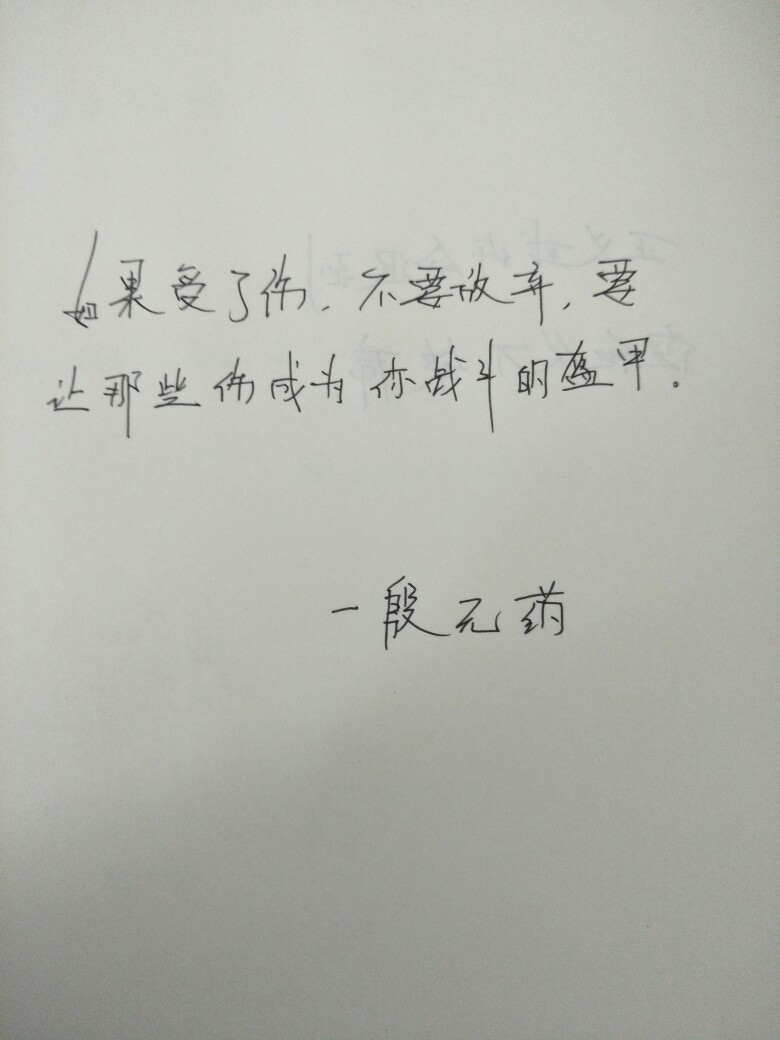 如果受了伤，不要放弃，要
让那些伤成为你战斗的盔甲。
一殷元药